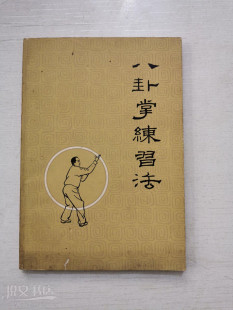 八卦掌練習法